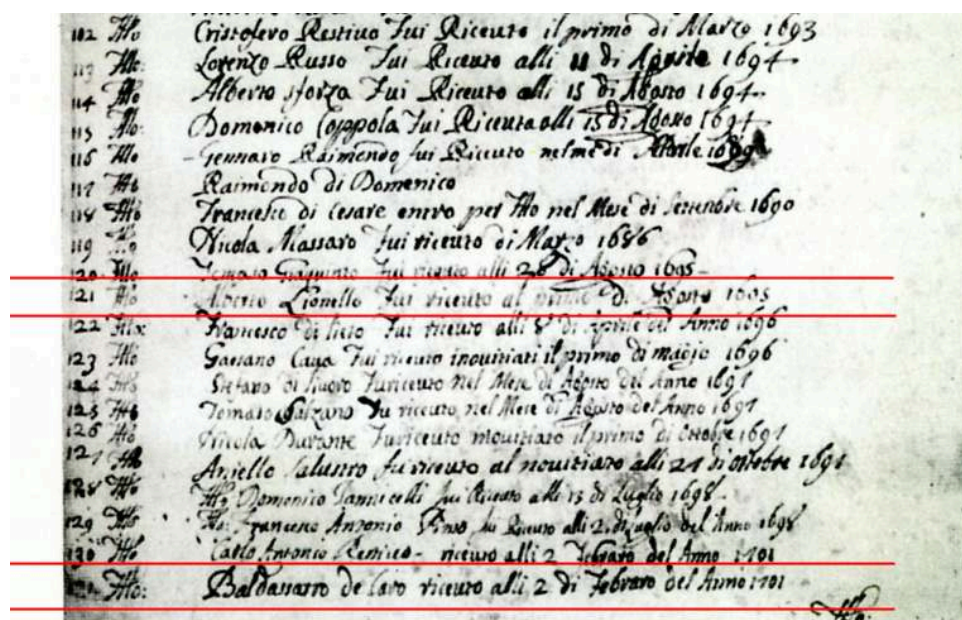 112 Fllo Cristofero Restivo Fui Riceuto il primo di Marzo 1693
113 Fllo: Lorenzo Russo Fui Riceuto alli 11 di Aprile 1694
114 Fllo Alberto sforza Fui Riceuto alli 15 di Agosto 1694
115 Fllo: Domenico Coppola Fui Riceuto alli 15 di Agosto 1694
116 Fllo Gennaro Raimondo fui Riceuto nel me di Aprile
117 Fllo Raimondo di Domenico
118 Fllo Francesco di Cesare entro per Fllo nel Mese di Settembre 1690
119 Fllo Nicola Massaro Fui riceuto di Marzo 1686
120 Fllo: Tomaso Fui riceuto alli 28 di Agosto 1695
121 Fllo Alberto Lionello Fui riceuto al primo di Agosto 1695
122 Francesco di lieto Fui riceuto alli 8 di Aprile del Anno 1696
123 Fllo Gaetano Fui riceuto il primo di magio 1696
124 Fllo Stefano di Fu riceuto Nel Mese di Agosto del Anno 1697
125 Fllo Tomaso Salzano Fu riceuto nel Mese di Agosto del Anno 1697
126 Fllo Nicola Durante Fu riceuto il primo di ottobre 1697
127 Fllo Aniello Salustro fu riceuto al novitiato alli 21 di ottobre 1697
128 Fllo Domenico Iannicelli fui Riceuto alli 13 di Luglio 1698
129 Fllo Francesco Antonio fui Riceuto alli 2 di Luglio del Anno 1698
130 Fllo Carlo Antonio riceuto alli 2 Febraro del Anno 1701
Fllo: Baldassarro de Caro riceuto alli 2 di Febraro del Anno 1701
Fllo: